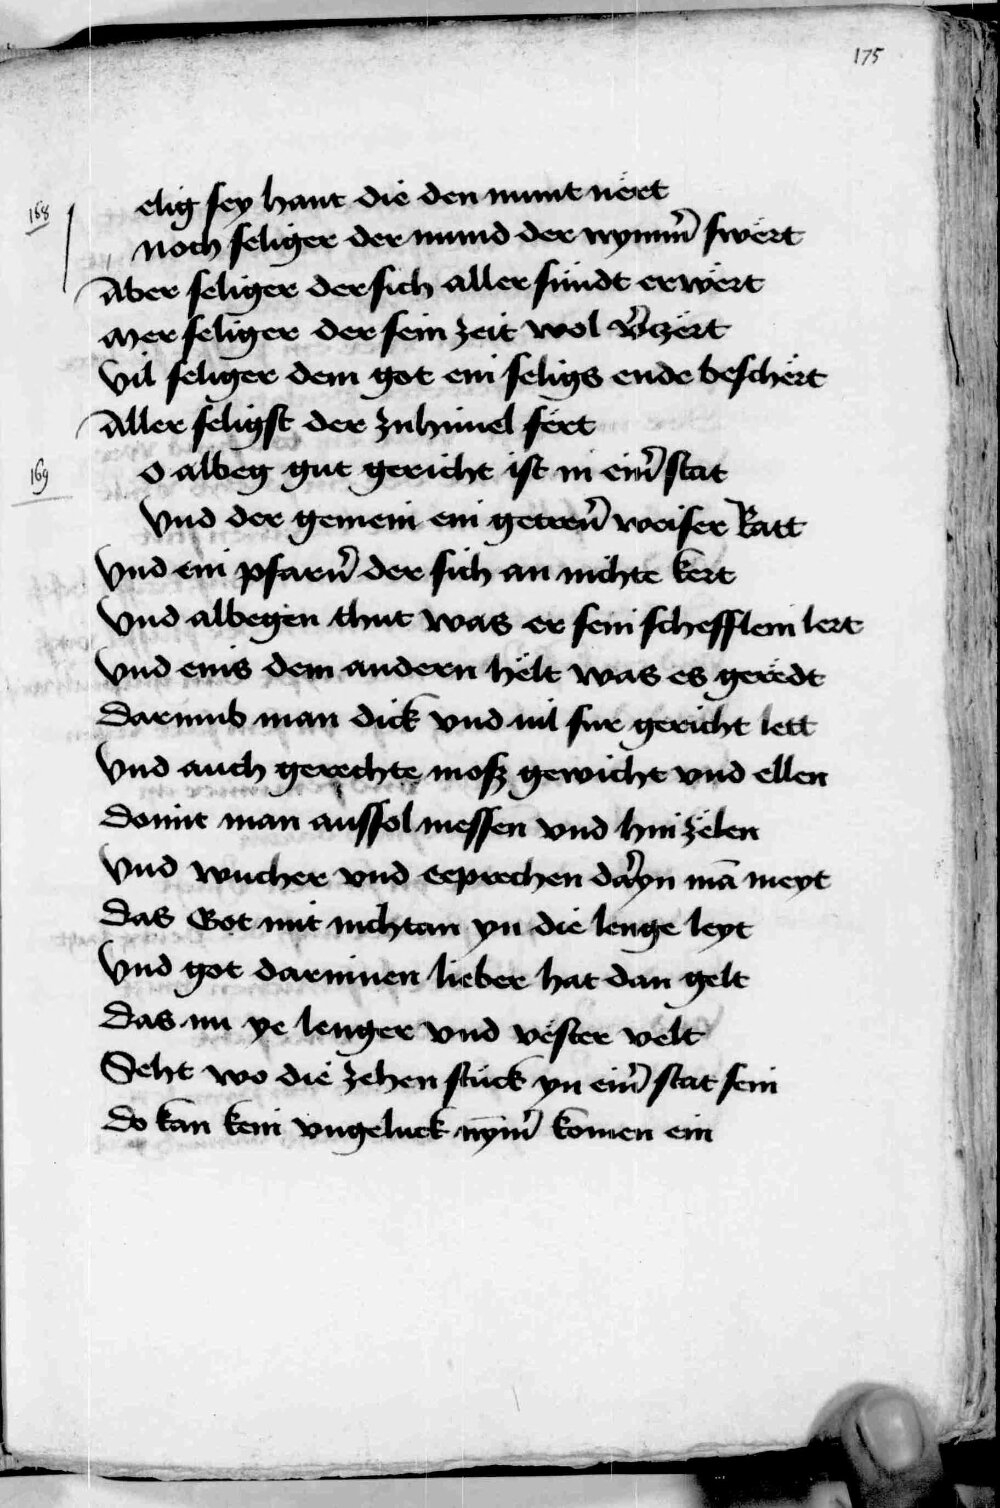 175
168
elig sey hant die den munt nert
Noch seliger der mund der nymm̄ swert
Aber seliger der sich aller sündt erwert
Mer seliger der sein zeit wol v̄tzert
Vil seliger dem got ein seligs ende beschert
Aller seligst der zu himel fert
169
o albeg gut gericht ist in ein̄ stat
Vnd der gemein ein getreu̅ weiser Ratt
Vnd ein pfarr̄ der sich an nichte kert
Vnd albegen thut was er sein schefflein lert
Vnd eins dem andern helt was es geredt
Darumb man dick vnd vil fur gericht lett
Vnd auch gerechte mosz gewicht vnd ellen
Domit man aussol messen vnd hin zelen
Vnd wucher vnd eeprechen daryn mā meyt
Das Got mit nichtan yn die lenge leyt
Vnd got darinnen lieber hat dan gelt
Das nu ye lenger vnd vester velt
Seht wo die zehen stuck yn ein̄ stat sein
Do kan kein vngeluck nym̄ komen ein